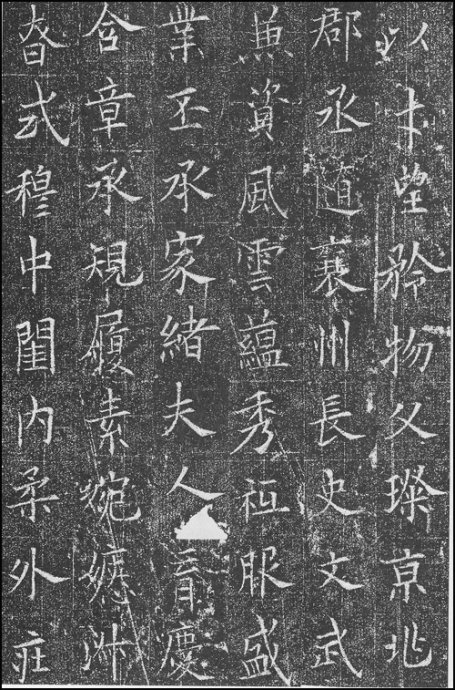 以才望矜物父璨京兆
郡丞随襄州長史文武
兼資風雲蘊秀祗服盛
業丕承家緒夫人育慶
含章承規履素婉嫕淑
昚式穆中閨内柔外莊